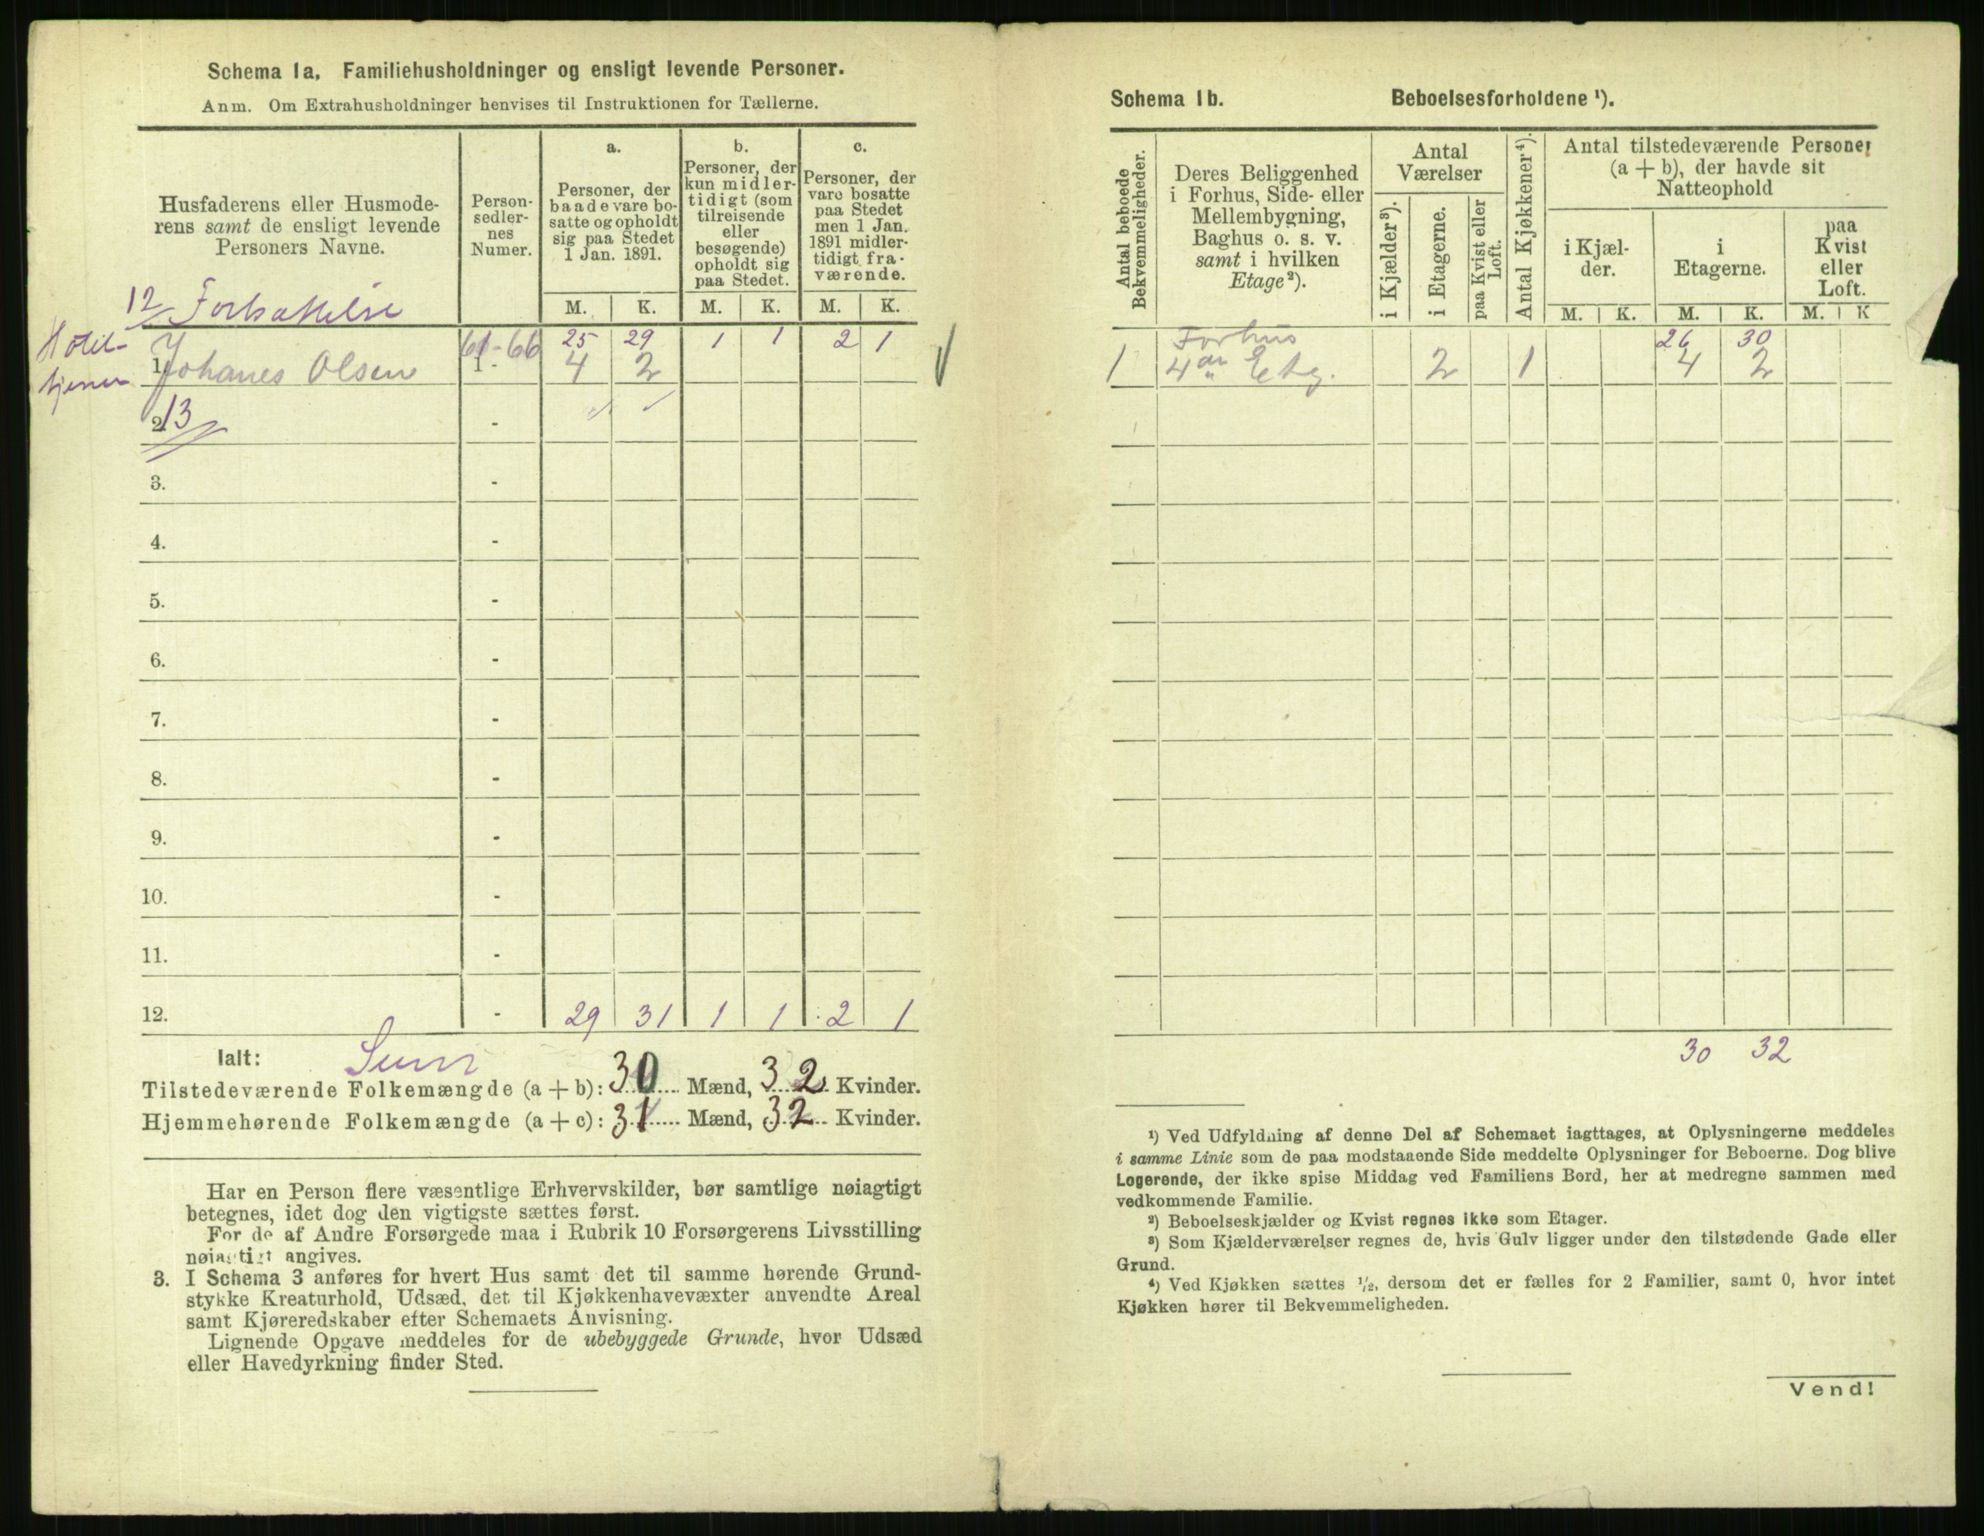 Schema 1a. Familiehusholdninger og ensligt levende Personer.
Anm. Om Extrahusholdninger henvises til Instruktionen for Tællerne.
Husfaderens eller Husmode-
rens samt de ensligt levende
Personers Navne.
Person-
sedler-
nes
Numer.
a.
Personer, der
baade vare bo-
satte og opholdt
sig paa Stedet
1 Jan. 1891.
b.
Personer, der
kun midler-
tidigt (som
tilreisende
eller
besøgende)
opholdt sig
paa Stedet.
c.
Personer, der
vare bosatte
paa Stedet
men 1 Jan.
1891 midler-
tidigt fra-
værende.
M. K. M. K. M. K.
12 Fortsættelse
Hotel-
tjener
61-66 25 29 1 1 2 1
1. Johanes Olsen 1 - 4 2
2. 13 -
3. -
4. -
5. -
6. -
7. -
8. -
9. -
10. -
11. -
12. - 29 31 1 1 2 1
Ialt: Sum
Tilstedeværende Folkemængde (a + b): 30 Mænd, 32 Kvinder.
Hjemmehørende Folkemængde (a + c): 31 Mænd, 32 Kvinder.
Har en Person flere væsentlige Erhvervskilder, bør samtlige nøiagtigt
betegnes, idet dog den vigtigste sættes først.
For de af Andre Forsørgede maa i Rubrik 10 Forsørgerens Livsstilling
nøiagtigt angives.
3. I Schema 3 anføres for hvert Hus samt det til samme hørende Grund-
stykke Kreaturhold, Udsæd, det til Kjøkkenhavevæxter anvendte Areal
samt Kjøreredskaber efter Schemaets Anvisning.
Lignende Opgave meddeles for de ubebyggede Grunde, hvor Udsæd
eller Havedyrkning finder Sted.
Schema 1b. Beboelsesforholdene ¹).
Antal beboede
Bekvemmeligheder.
Deres Beliggenhed
i Forhus, Side- eller
Mellembygning,
Baghus o. s. v.
samt i hvilken
Etage ²).
Antal
Værelser
i Kjælder ³).
i Etagerne.
paa Kvist eller
Loft.
Antal Kjøkkener ⁴).
Antal tilstedeværende Personer
(a + b), der havde sit
Natteophold
i Kjæl-
der.
i
Etagerne.
paa
Kvist
eller
Loft.
M. K. M. K. M. K
Forhus 26 30
1 4de Etg. 2 1 4 2
30 32
¹) Ved Udfyldning af denne Del af Schemaet iagttages, at Oplysningerne meddeles
i samme Linie som de paa modstaaende Side meddelte Oplysninger for Beboerne. Dog blive
Logerende, der ikke spise Middag ved Familiens Bord, her at medregne sammen med
vedkommende Familie.
²) Beboelseskjælder og Kvist regnes ikke som Etager.
³) Som Kjælderværelser regnes de, hvis Gulv ligger under den tilstødende Gade eller
Grund.
⁴) Ved Kjøkken sættes ¹/₂, dersom det er fælles for 2 Familier, samt 0, hvor intet
Kjøkken hører til Bekvemmeligheden.
Vend!